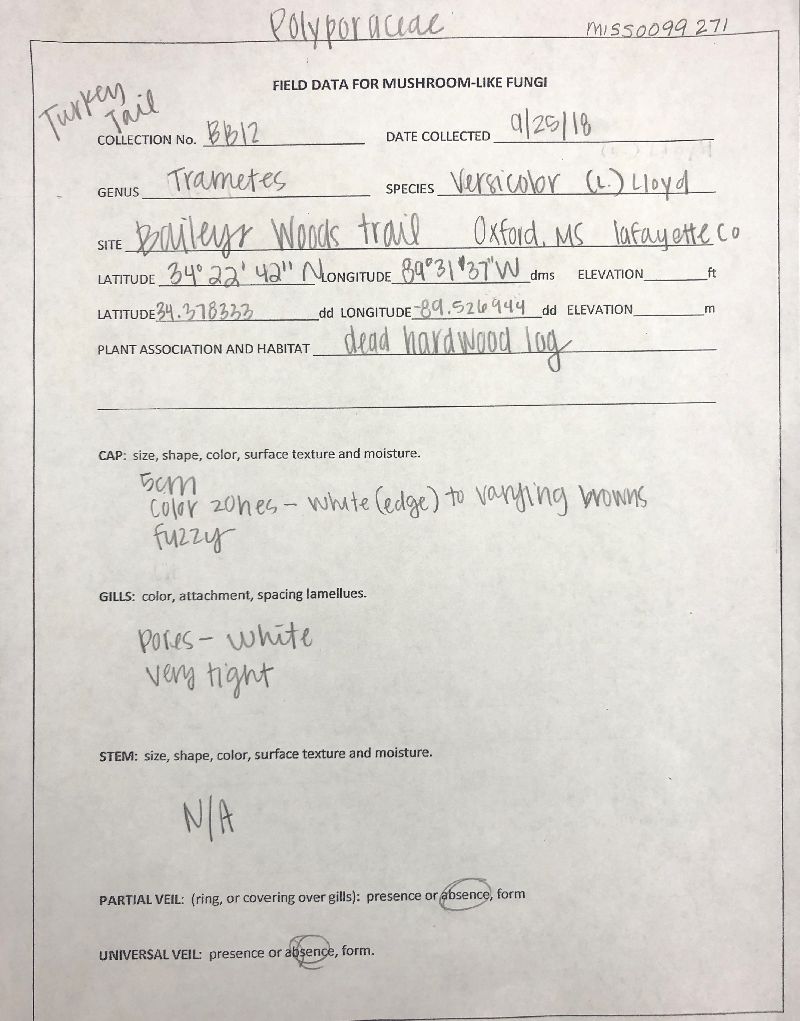 Polyporaceae MISS0099271
FIELD DATA FOR MUSHROOM-LIKE FUNGI
Turkey
Tail
COLLECTION No. BB12 DATE COLLECTED 9/25/18
GENUS Trametes SPECIES Versicolor (L.) Lloyd
SITE Baileys Woods trail Oxford, MS lafayette Co
LATITUDE 34° 22' 42" N LONGITUDE 89° 31' 37" W dms ELEVATION ft
LATITUDE 34.378333 dd LONGITUDE -89.526944 dd ELEVATION m
PLANT ASSOCIATION AND HABITAT dead hardwood log
CAP: size, shape, color, surface texture and moisture.
5cm
Color zones - white (edge) to varying browns
fuzzy
GILLS: color, attachment, spacing lamellues.
pores - white
very tight
STEM: size, shape, color, surface texture and moisture.
N/A
PARTIAL VEIL: (ring, or covering over gills): presence or absence, form
UNIVERSAL VEIL: presence or absence, form.